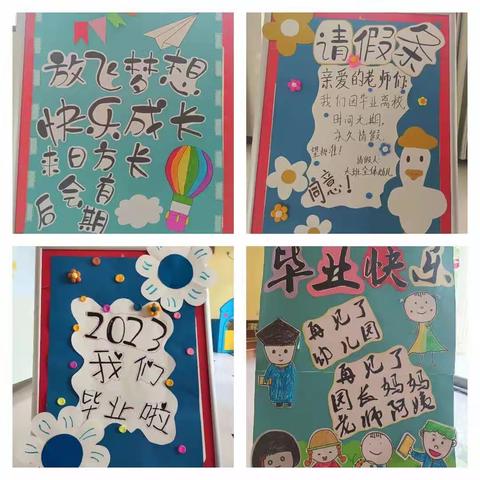 放飞梦想
快乐成长
来日方长
后会有期
请假条
亲爱的老师们：
我们因毕业离校，
时间无期，
永久请假，
望批准！
请假人
大班全体幼儿
同意！
2023
我们
毕业啦
毕业快乐
再见了
幼儿园
再见了
园长妈妈
老师阿姨